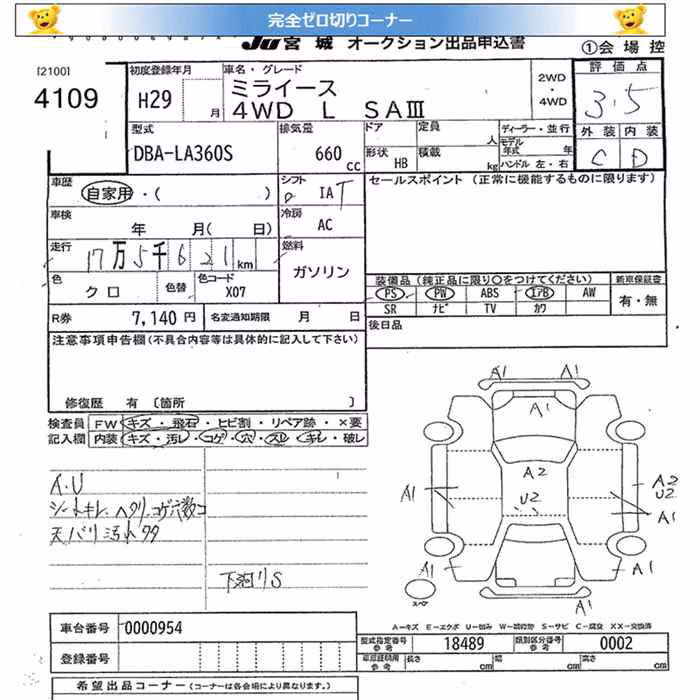 完全ゼロ切りコーナー
JU宮城 オークション出品申込書
①会場控
[2100]
4109
初度登録年月
H29 月
車名・グレード
ミライース
4WD L SAⅢ
2WD
・
4WD
評価点
3.5
外装 内装
C D
型式
DBA-LA360S
排気量
660 cc
ドア
形状 HB
定員 人
積載 kg
ディーラー・並行
モデル年式 年
ハンドル 左・右
車歴
自家用・( )
シフト
IAT
セールスポイント (正常に機能するものに限ります)
車検
年 月( 日)
冷房
AC
走行
17万5千621km
燃料
ガソリン
色
クロ
色替
色コード
X07
装備品 (純正品に限り〇をつけてください)
新車保証書
PS PW ABS エアB AW
有・無
SR ナビ TV カワ
R券
7,140円
名変通知期限 月 日
後日品
注意事項申告欄(不具合内容等は具体的に記入して下さい)
修復歴 有 〔箇所 〕
検査員
記入欄
FW キズ・飛石・ヒビ割・リペア跡・×要
内装 キズ・汚レ・コゲ・穴・スレ・キレ・破レ
A・U
シートキレ、ヘタリ、コゲ穴数コ
天バリ汚レ
下廻りS
A1
A1
A1
A2
U2
A1
A2
U2
A1
A1
A1
A1
スペア
A−キズ E−エクボ U−凹み W−補修跡 S−サビ C−腐食 XX−交換済
車台番号 0000954
型式指定番号
参考
18489
類別区分番号
参考
0002
登録番号
車庫証明用
参考
長さ cm
幅 cm
高さ cm
希望出品コーナー (コーナーは各会場により異なります。)